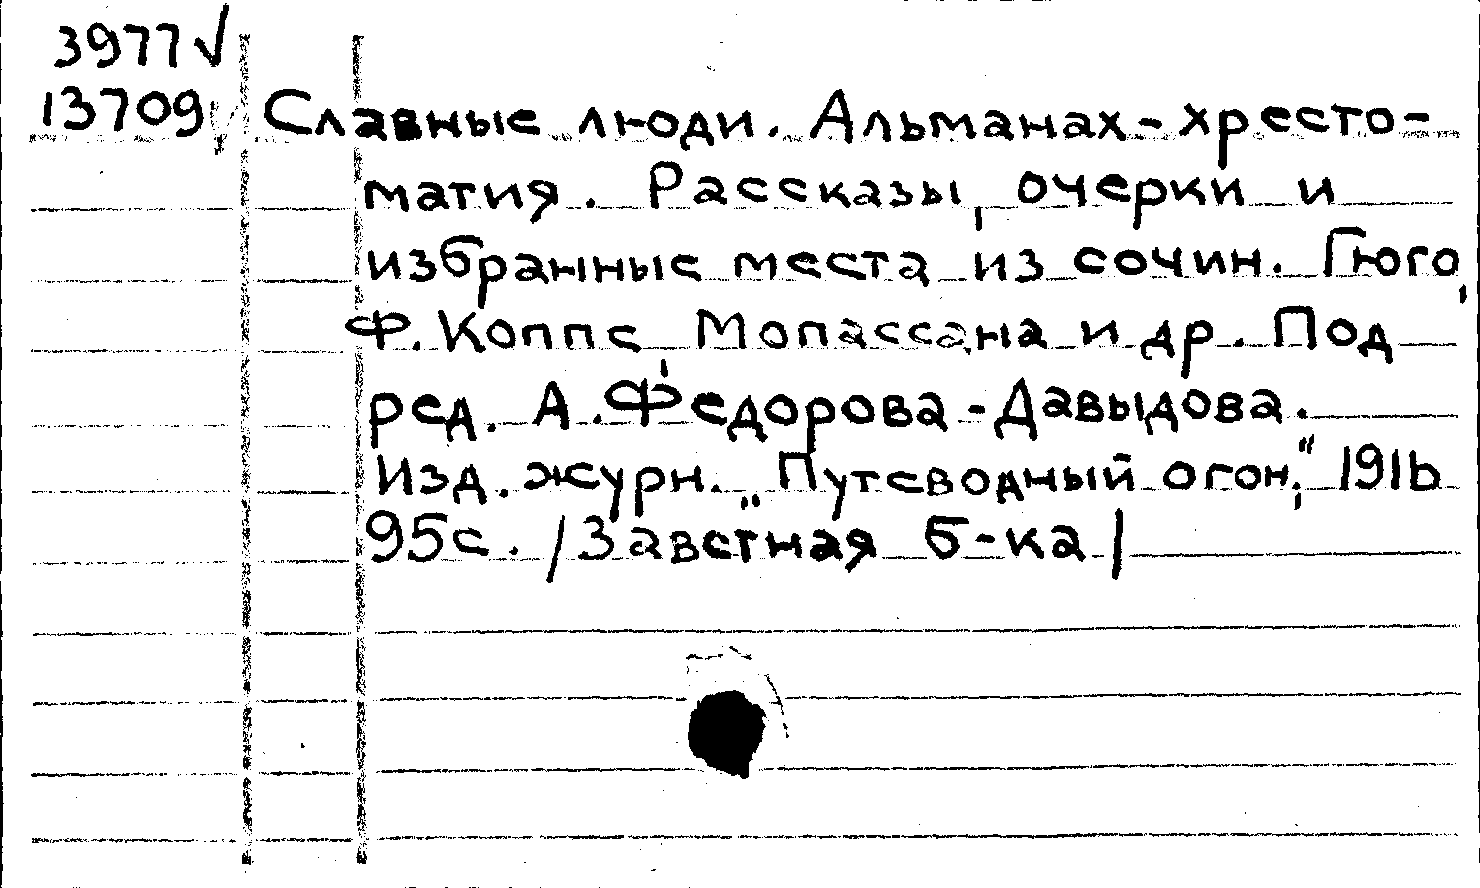 3977√
13709√ Славные люди. Альманах-хресто-
матия. Рассказы, очерки и
избранные места из сочин. Гюго,
Ф. Коппе, Мопассана и др. Под
ред. А. Федорова-Давыдова.
Изд. журн. „Путеводный огон.", 1916
95с. /Завєтная б-ка/